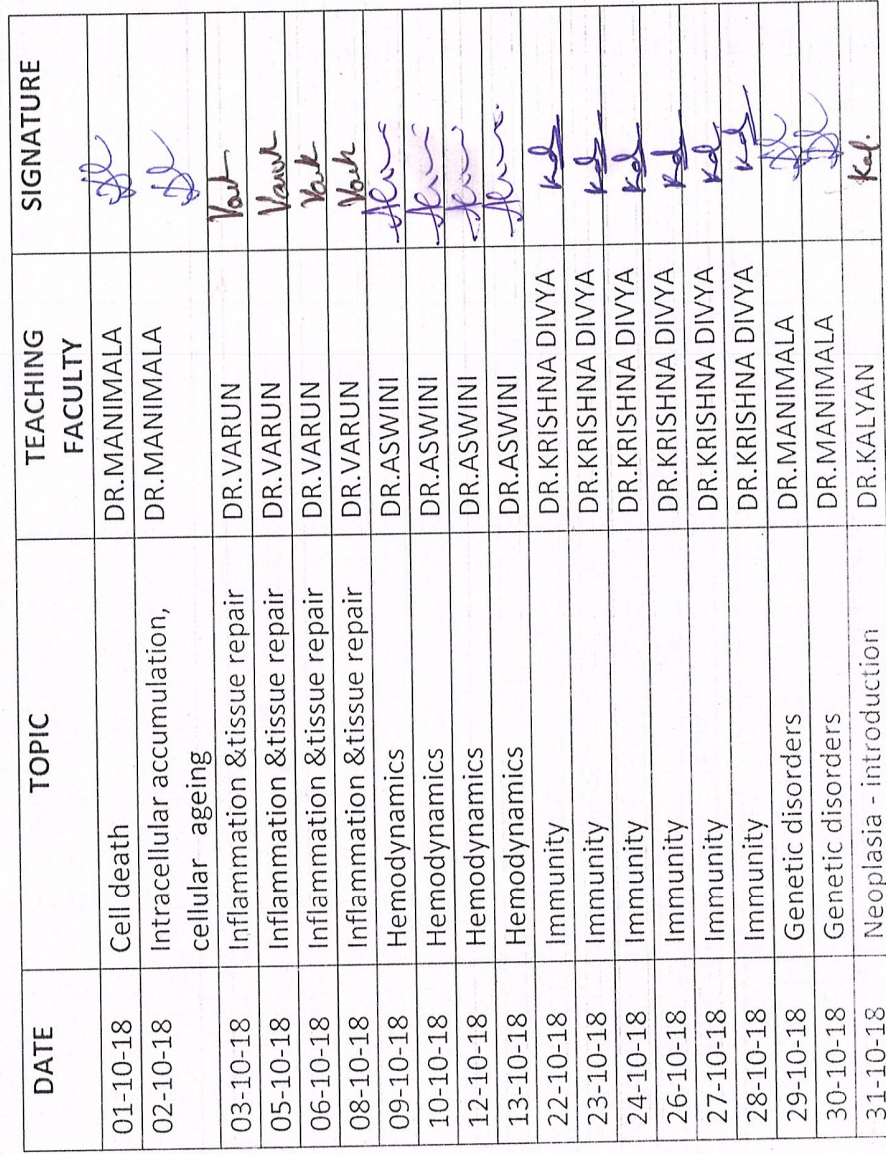 DATE TOPIC TEACHING FACULTY SIGNATURE
01-10-18 Cell death DR.MANIMALA
02-10-18 Intracellular accumulation, DR.MANIMALA
cellular ageing
03-10-18 Inflammation &tissue repair DR.VARUN
05-10-18 Inflammation &tissue repair DR.VARUN Varun
06-10-18 Inflammation &tissue repair DR.VARUN
08-10-18 Inflammation &tissue repair DR.VARUN
09-10-18 Hemodynamics DR.ASWINI
10-10-18 Hemodynamics DR.ASWINI
12-10-18 Hemodynamics DR.ASWINI
13-10-18 Hemodynamics DR.ASWINI
22-10-18 Immunity DR.KRISHNA DIVYA
23-10-18 Immunity DR.KRISHNA DIVYA
24-10-18 Immunity DR.KRISHNA DIVYA
26-10-18 Immunity DR.KRISHNA DIVYA
27-10-18 Immunity DR.KRISHNA DIVYA
28-10-18 Immunity DR.KRISHNA DIVYA
29-10-18 Genetic disorders DR.MANIMALA
30-10-18 Genetic disorders DR.MANIMALA
31-10-18 Neoplasia - introduction DR.KALYAN Kal.